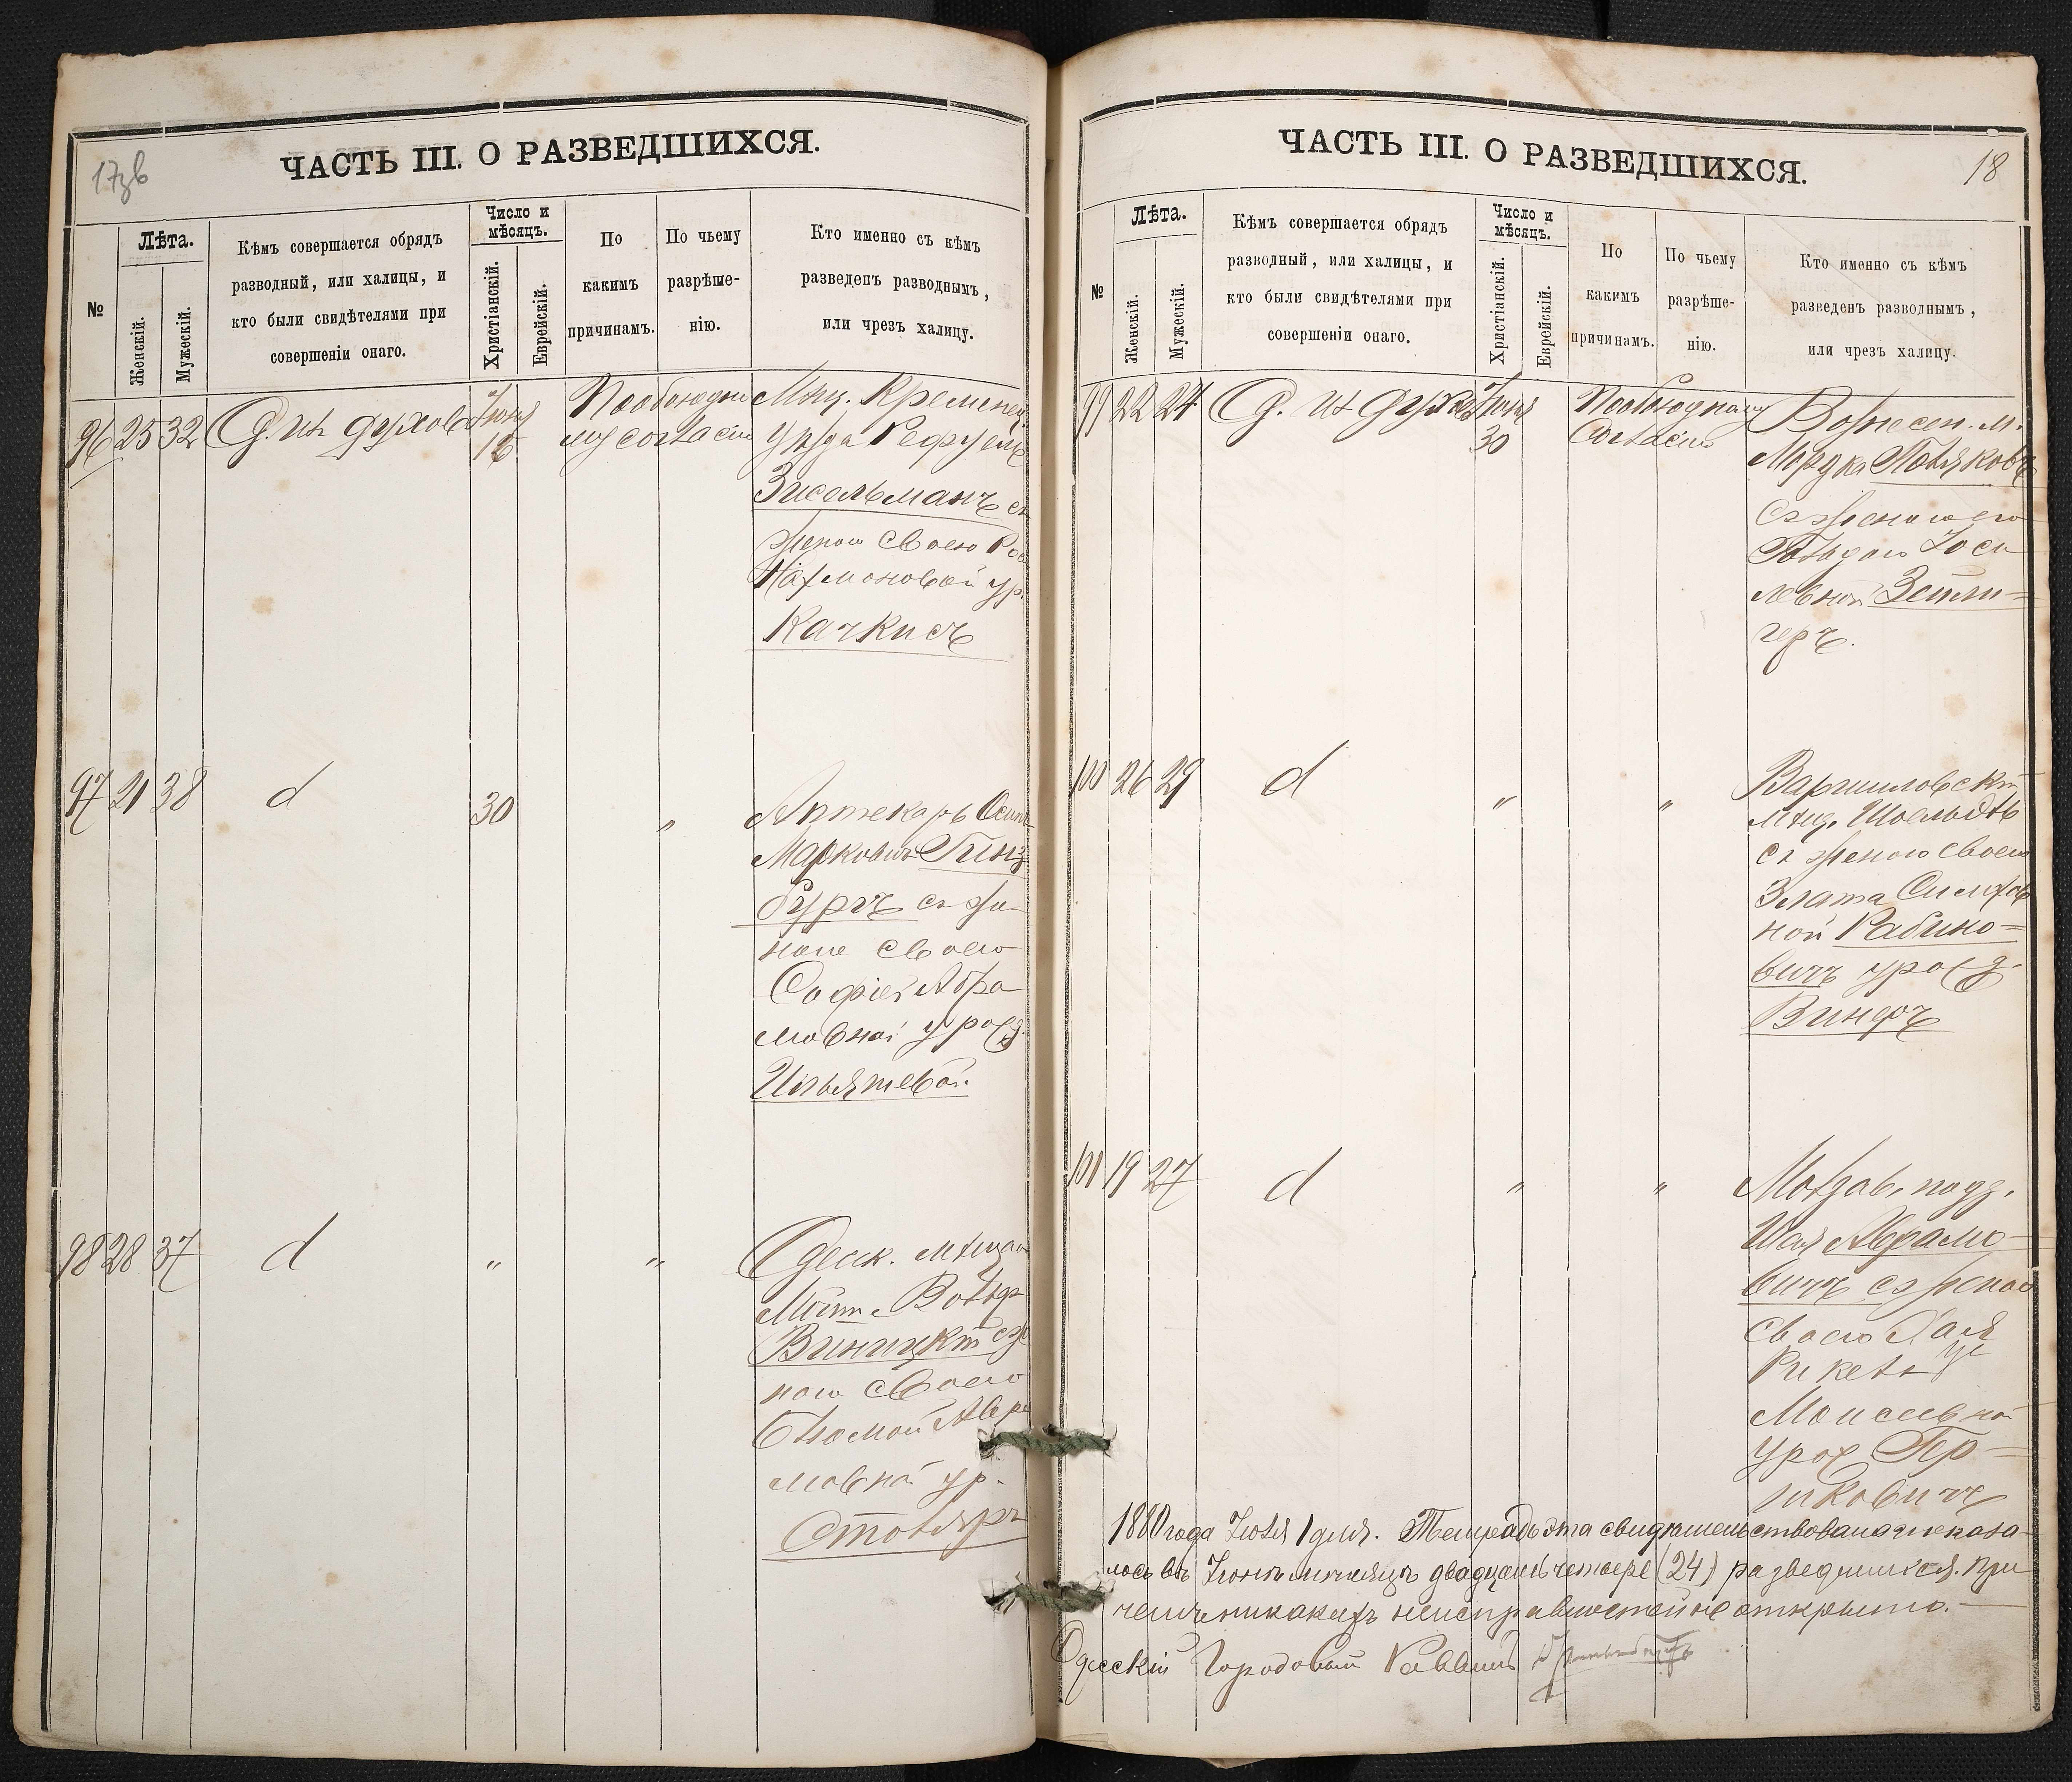 17зв
ЧАСТЬ III. О РАЗВЕДШИХСЯ.
№
Лѣта.
Женскій.
Мужескій.
Кѣмъ совершается обрядъ
разводный, или халицы, и
кто были свидѣтелями при
совершеніи онаго.
Число и
мѣсяцъ.
Христіанскій.
Еврейскій.
По
какимъ
причинамъ.
По чьему
разрѣше-
нію.
Кто именно съ кѣмъ
разведенъ разводнымъ,
или чрезъ халицу.
96 25 32 духов Іюня
16
По обоюдно
му согласію
Мѣщ. Кременец.
уѣзда
Зисельманъ съ
женою своею
Нахмоновой ур.
Качкисъ
97 21 38 d 30 "
Аптекарь Осипъ
Марковичъ Гинз
бургъ съ же
ною своею
Софіей Абра
мовной урожд.
98 28 37 d " "
Одесск. мѣщан
Вольф
Виницкій съ же
ною своею
Блюмой Авра
мовной ур.
Столяръ
18
ЧАСТЬ III. О РАЗВЕДШИХСЯ.
№
Лѣта.
Женскій.
Мужескій.
Кѣмъ совершается обрядъ
разводный, или халицы, и
кто были свидѣтелями при
совершеніи онаго.
Число и
мѣсяцъ.
Христіанскій.
Еврейскій.
По
какимъ
причинамъ.
По чьему
разрѣше-
нію.
Кто именно съ кѣмъ
разведенъ разводнымъ,
или чрезъ халицу.
99 22 27 Іюня
30
По обоюдному
согласію
Вознесен. м.
Мордка Поляковъ
съ женою его
Гольдою Іоси
левной Зейли-
геръ.
100 26 29 d " "
мѣщ.
съ женою своею
Злата
ной Рабино-
вичъ урожд.
Виндъ
101 19 27 d " "
Молдав. подд.
Шая Абрамо-
вичъ съ женою
своею Хая
Моисеевной
урож. Гер-
шковичъ
1880 года Іюля 1 дня. Тетрадь эта свидѣтельствована и оказа-
лось въ Іюнѣ мѣсяцѣ двадцать четыре (24) разведшихся. При
чемъ никакихъ неисправностей не открыто.
Одесскій Городовый Раввинъ